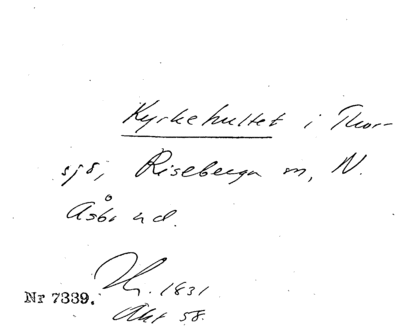 Kyrkehultet i Thor-
sjö, Riseberga sn, N.
Åsbo hd.
1831
Nr 7339.
Akt 58.